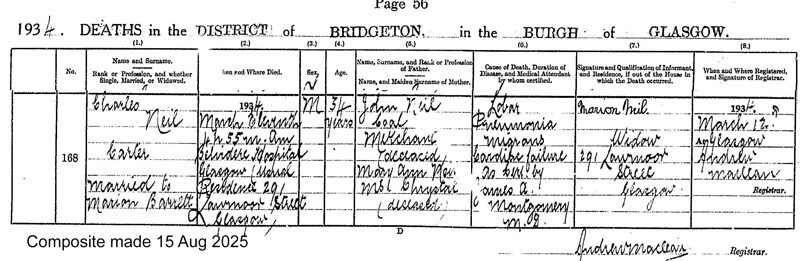 Page 56
1934. DEATHS in the DISTRICT of BRIDGETON, in the BURGH of GLASGOW.
(1.) (2.) (3.) (4.) (5.) (6.) (7.) (8.)
No.
Name and Surname.
Rank or Profession, and whether
Single, Married, or Widowed.
When and Where Died.
Sex.
Age.
Name, Surname, and Rank or Profession
of Father.
Name, and Maiden Surname of Mother.
Cause of Death, Duration of
Disease, and Medical Attendant
by whom certified.
Signature and Qualification of Informant,
and Residence, if out of the House in
which the Death occurred.
When and Where Registered,
and Signature of Registrar.
168
Charles
Neil
Carter
Married to
Marion Barrett
1934.
March Eleventh
4h. 55m. A.M.
Belvidere Hospital
Glasgow Usual
Residence 291
Lawmoor Street
Glasgow
M
34
years
John Neil
Coal
Merchant
Deceased
Mary Ann Neil
M.S. Chrystal
(deceased)
Lobar
Pneumonia
migrans
Cardiac failure
As Cert by
James A.
Montgomery
M.B.
Marion Neil
Widow
291 Lawmoor
Street
Glasgow
1934.
March 12.
At Glasgow
Andrew
Maclean
Registrar.
D
Composite made 15 Aug 2025
Andrew Maclean Registrar.